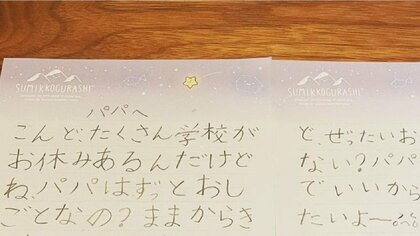 SUMIKKOGURASHI
パパへ
こんど、たくさん学校が
お休みあるんだけど
ね、パパはずっとおし
ごとなの？ままからき
SUMIKKOGURASHI
ど、ぜったいお
ない？パパ
でいいから
たいよー。